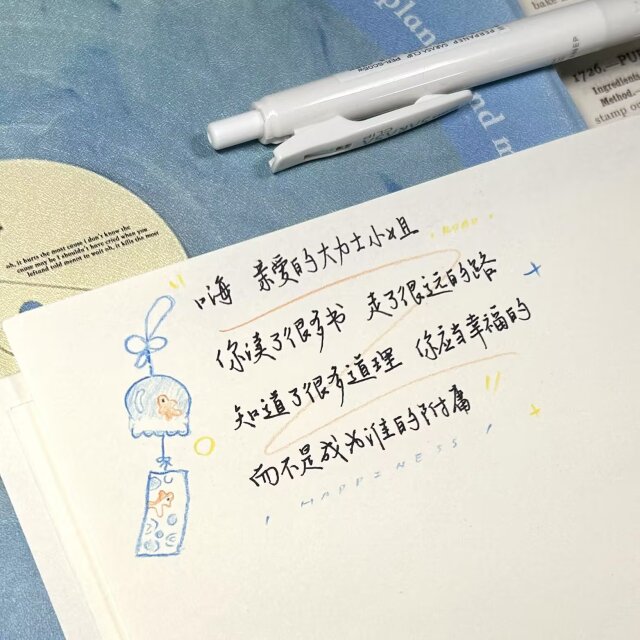 plan
nd m
1726.—PU
Ingredients
Method.—
stamp
oh, it hurts the most cause I don't know the
cause may be I shouldn't have cried when you
left and told me not to wait oh, it kills the most
嗨 亲爱的大力士小姐
你读了很多书 走了很远的路
知道了很多道理 你应当幸福的
而不是成为谁的附庸
HAPPINESS